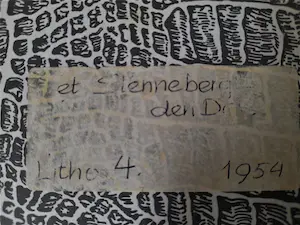 et Slenneberg
den D
Litho 4. 1954